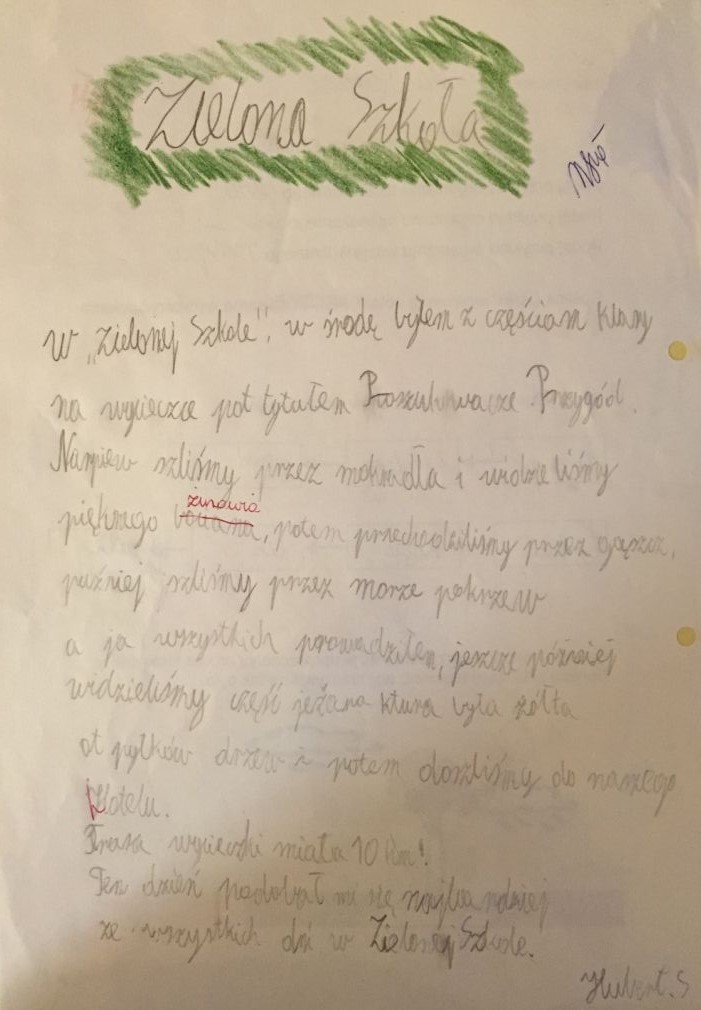 Zielona Szkoła
W „Zielonej Szkole", w środę byłem z częściam klasy
na wycieczce pot tytułem Poszukiwacze Przygód.
Narpiew szliśmy przez mokradła i widzieliśmy
żurawia
pięknego bociana, potem przechodziliśmy przez gąszcz,
puźniej szliśmy przez morze pokrzew
a ja wszystkich prowadziłem, jeszcze później
widzieliśmy część jeżara ktura była żółta
ot pyłków drzew i potem doszliśmy do naszego
Hotelu.
Trasa wycieczki miała 10 km!
Ten dzień podobał mi się najbardziej
ze wszystkich dni w Zielonej Szkole.
Hubert.S